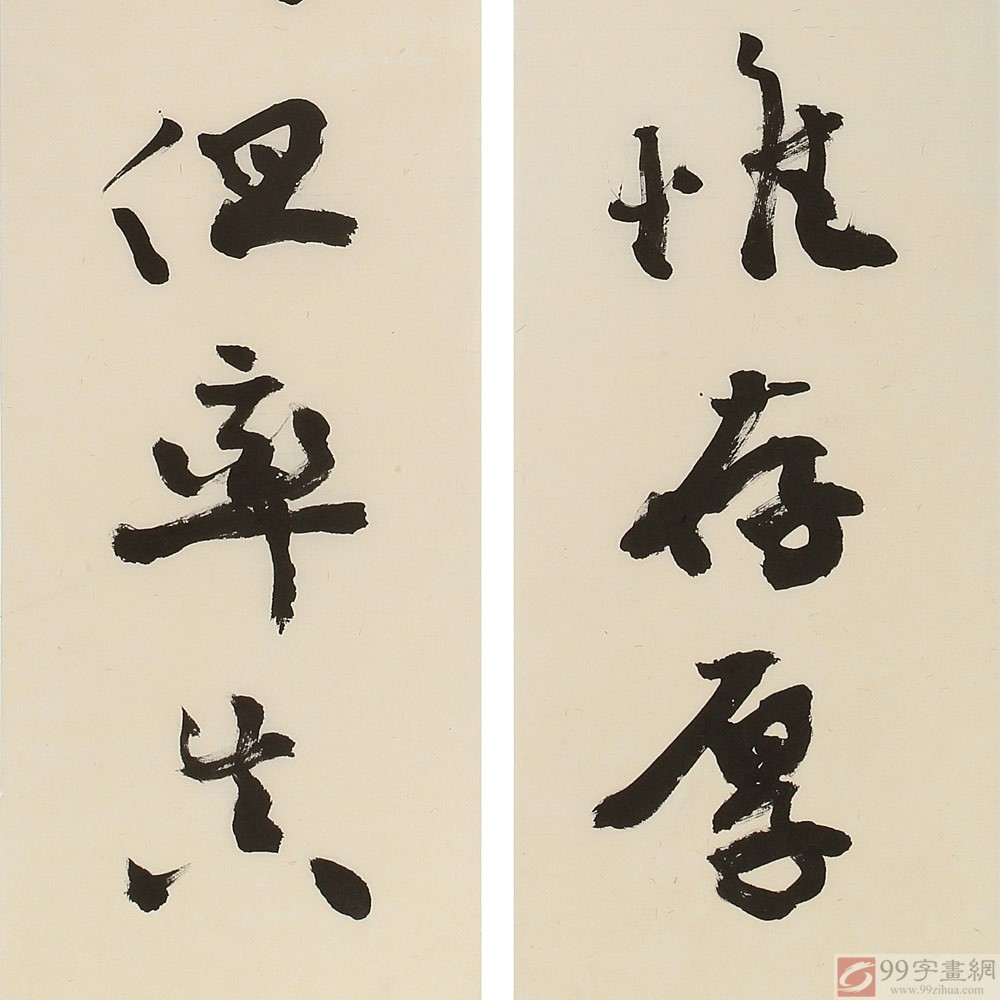 惟存厚
但率真
99字畫網
www.99zihua.com